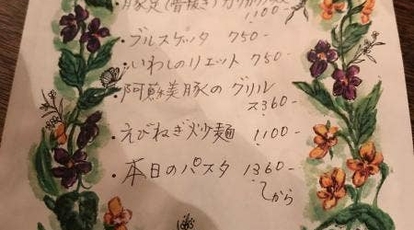 豚足(骨抜き)
1100-
・ブルスケッタ 750-
・いわしのリエット 750-
・阿蘇美豚のグリル
2360-
・えびねぎ炒麺 1100-
・本日のパスタ 1360-
てから